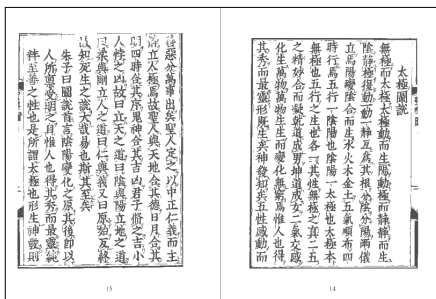 太極圖說
無極而太極太極動而生陽動極而靜靜而生
陰靜極復動一動一靜互爲其根分陰分陽兩儀
立焉陽變陰合而生水火木金土五氣順布四
時行焉五行一陰陽也陰陽一太極也太極本
無極也五行之生也各一其性無極之真二五
之精妙合而凝乾道成男坤道成女二氣交感
化生萬物萬物生生而變化無窮焉惟人也得
其秀而最靈形既生矣神發知矣五性感動而
14
善惡分萬事出矣聖人定之以中正仁義而主
立太極焉故聖人與天地合其德日月合其
明四時合其序鬼神合其吉凶君子修之吉小
人悖之凶故曰立天之道曰陰與陽立地之道
曰柔與剛立人之道曰仁與義又曰原始反終
故知死生之說大哉易也斯其至矣
朱子曰圖說首言陰陽變化之原其後卽以
人所稟受明之自惟人也得其秀而最靈純
粹至善之性也是所謂太極也形生神發則
15